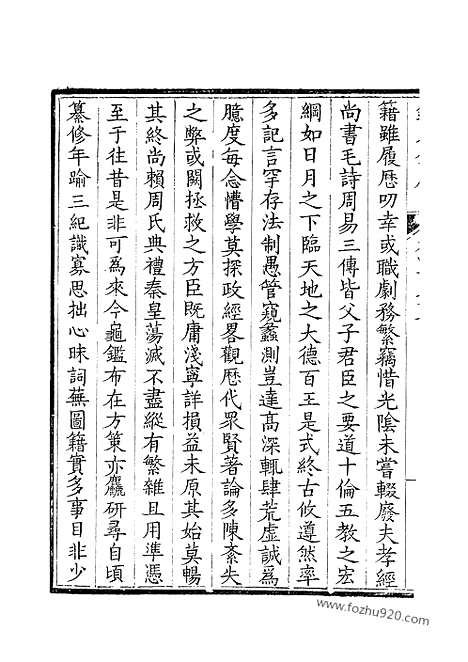 籍雖履歷叨幸或職劇務繁竊惜光陰未嘗輟廢夫孝經
尚書毛詩周易三傳皆父子君臣之要道十倫五教之宏
綱如日月之下臨天地之大德百王是式終古攸遵然率
多記言罕存法制愚管窺蠡測豈達高深輒肆荒虛誠為
臆度每念懵學莫探政經畧觀歷代眾賢著論多陳紊失
之弊或闕拯救之方臣既庸淺寧詳損益未原其始莫暢
其終尚賴周氏典禮秦皇蕩滅不盡縱有繁雜且用準憑
至于往昔是非可為來今龜鑑布在方策亦麤研尋自頃
纂修年踰三紀識寡思拙心昧詞蕪圖籍實多事目非少
www.fozhu920.com